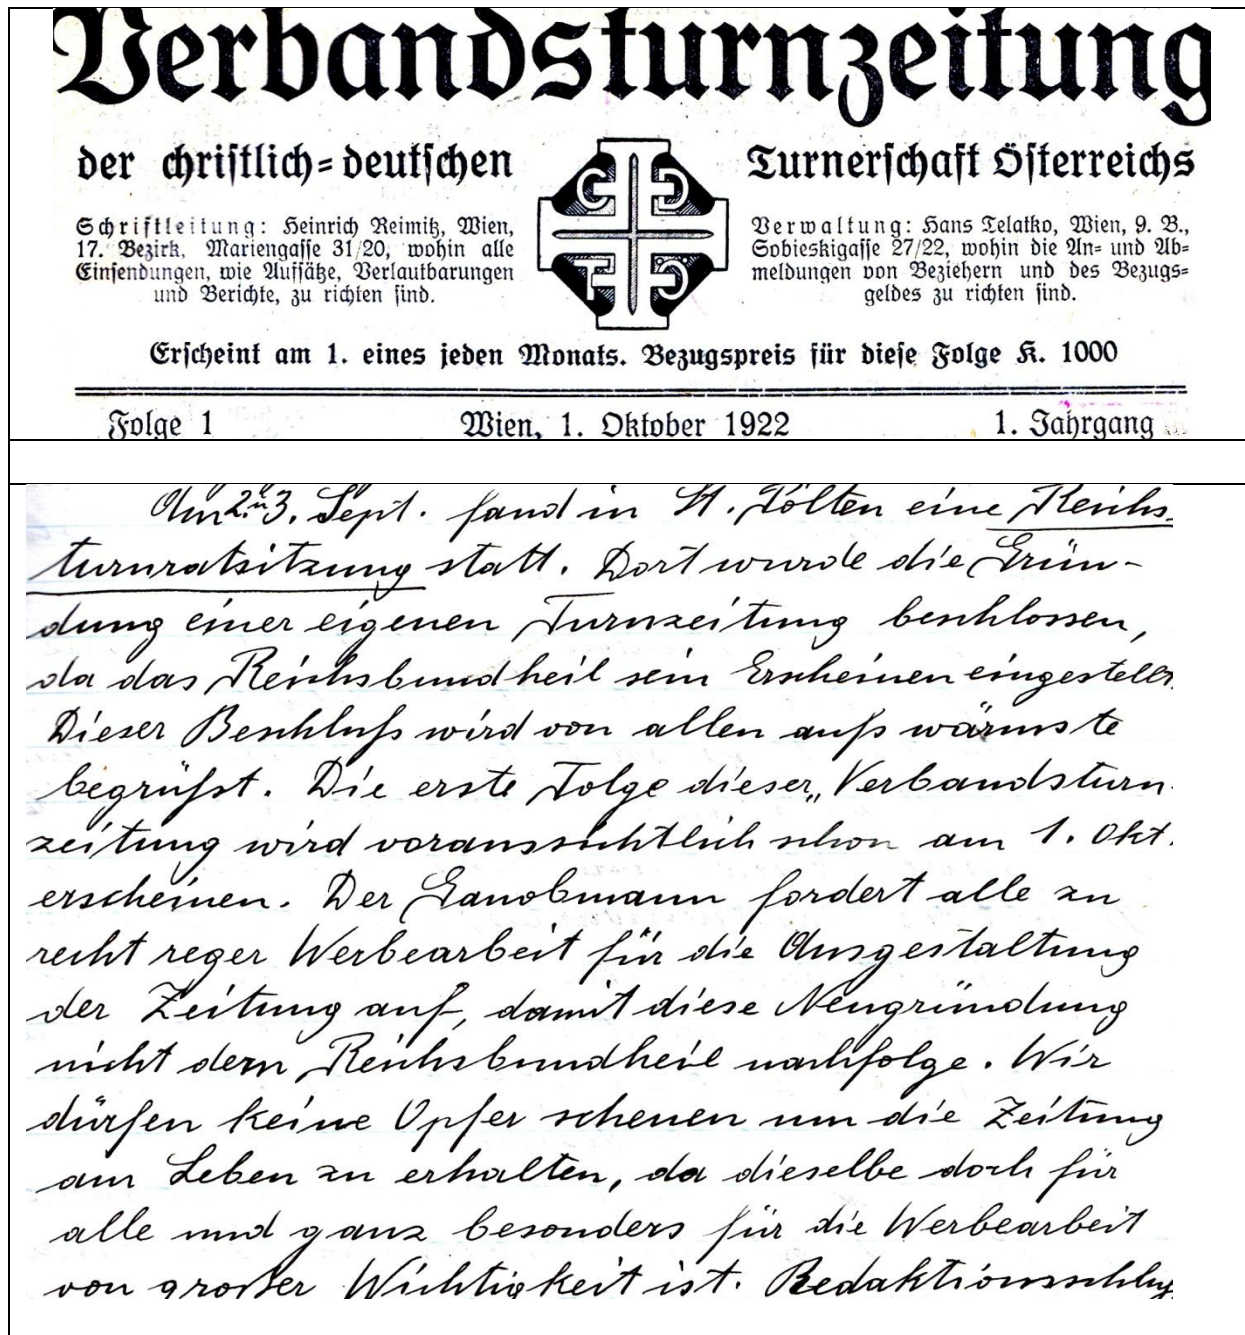 Verbandsturnzeitung
der christlich-deutschen Turnerschaft Österreichs
Schriftleitung: Heinrich Reimitz, Wien,
17. Bezirk, Mariengasse 31/20, wohin alle
Einsendungen, wie Aufsätze, Verlautbarungen
und Berichte, zu richten sind.
C D
T Ö
Verwaltung: Hans Telatko, Wien, 9. B.,
Sobieskigasse 27/22, wohin die An- und Ab-
meldungen von Beziehern und des Bezugs-
geldes zu richten sind.
Erscheint am 1. eines jeden Monats. Bezugspreis für diese Folge K. 1000
Folge 1 Wien, 1. Oktober 1922 1. Jahrgang
Am 2. u. 3. Sept. fand in St. Pölten eine Reichs-
turnratsitzung statt. Dort wurde die Grün-
dung einer eigenen Turnzeitung beschlossen,
da das Reichsbundheil sein Erscheinen eingestellt
Dieser Beschluß wird von allen aufs wärmste
begrüßt. Die erste Folge dieser „Verbandsturn-
zeitung wird voraussichtlich schon am 1. Okt.
erscheinen. Der Gauobmann fordert alle zu
recht reger Werbearbeit für die Ausgestaltung
der Zeitung auf, damit diese Neugründung
nicht dem Reichsbundheil nachfolge. Wir
dürfen keine Opfer scheuen um die Zeitung
am Leben zu erhalten, da dieselbe doch für
alle und ganz besonders für die Werbearbeit
von großer Wichtigkeit ist. Redaktionsschluß